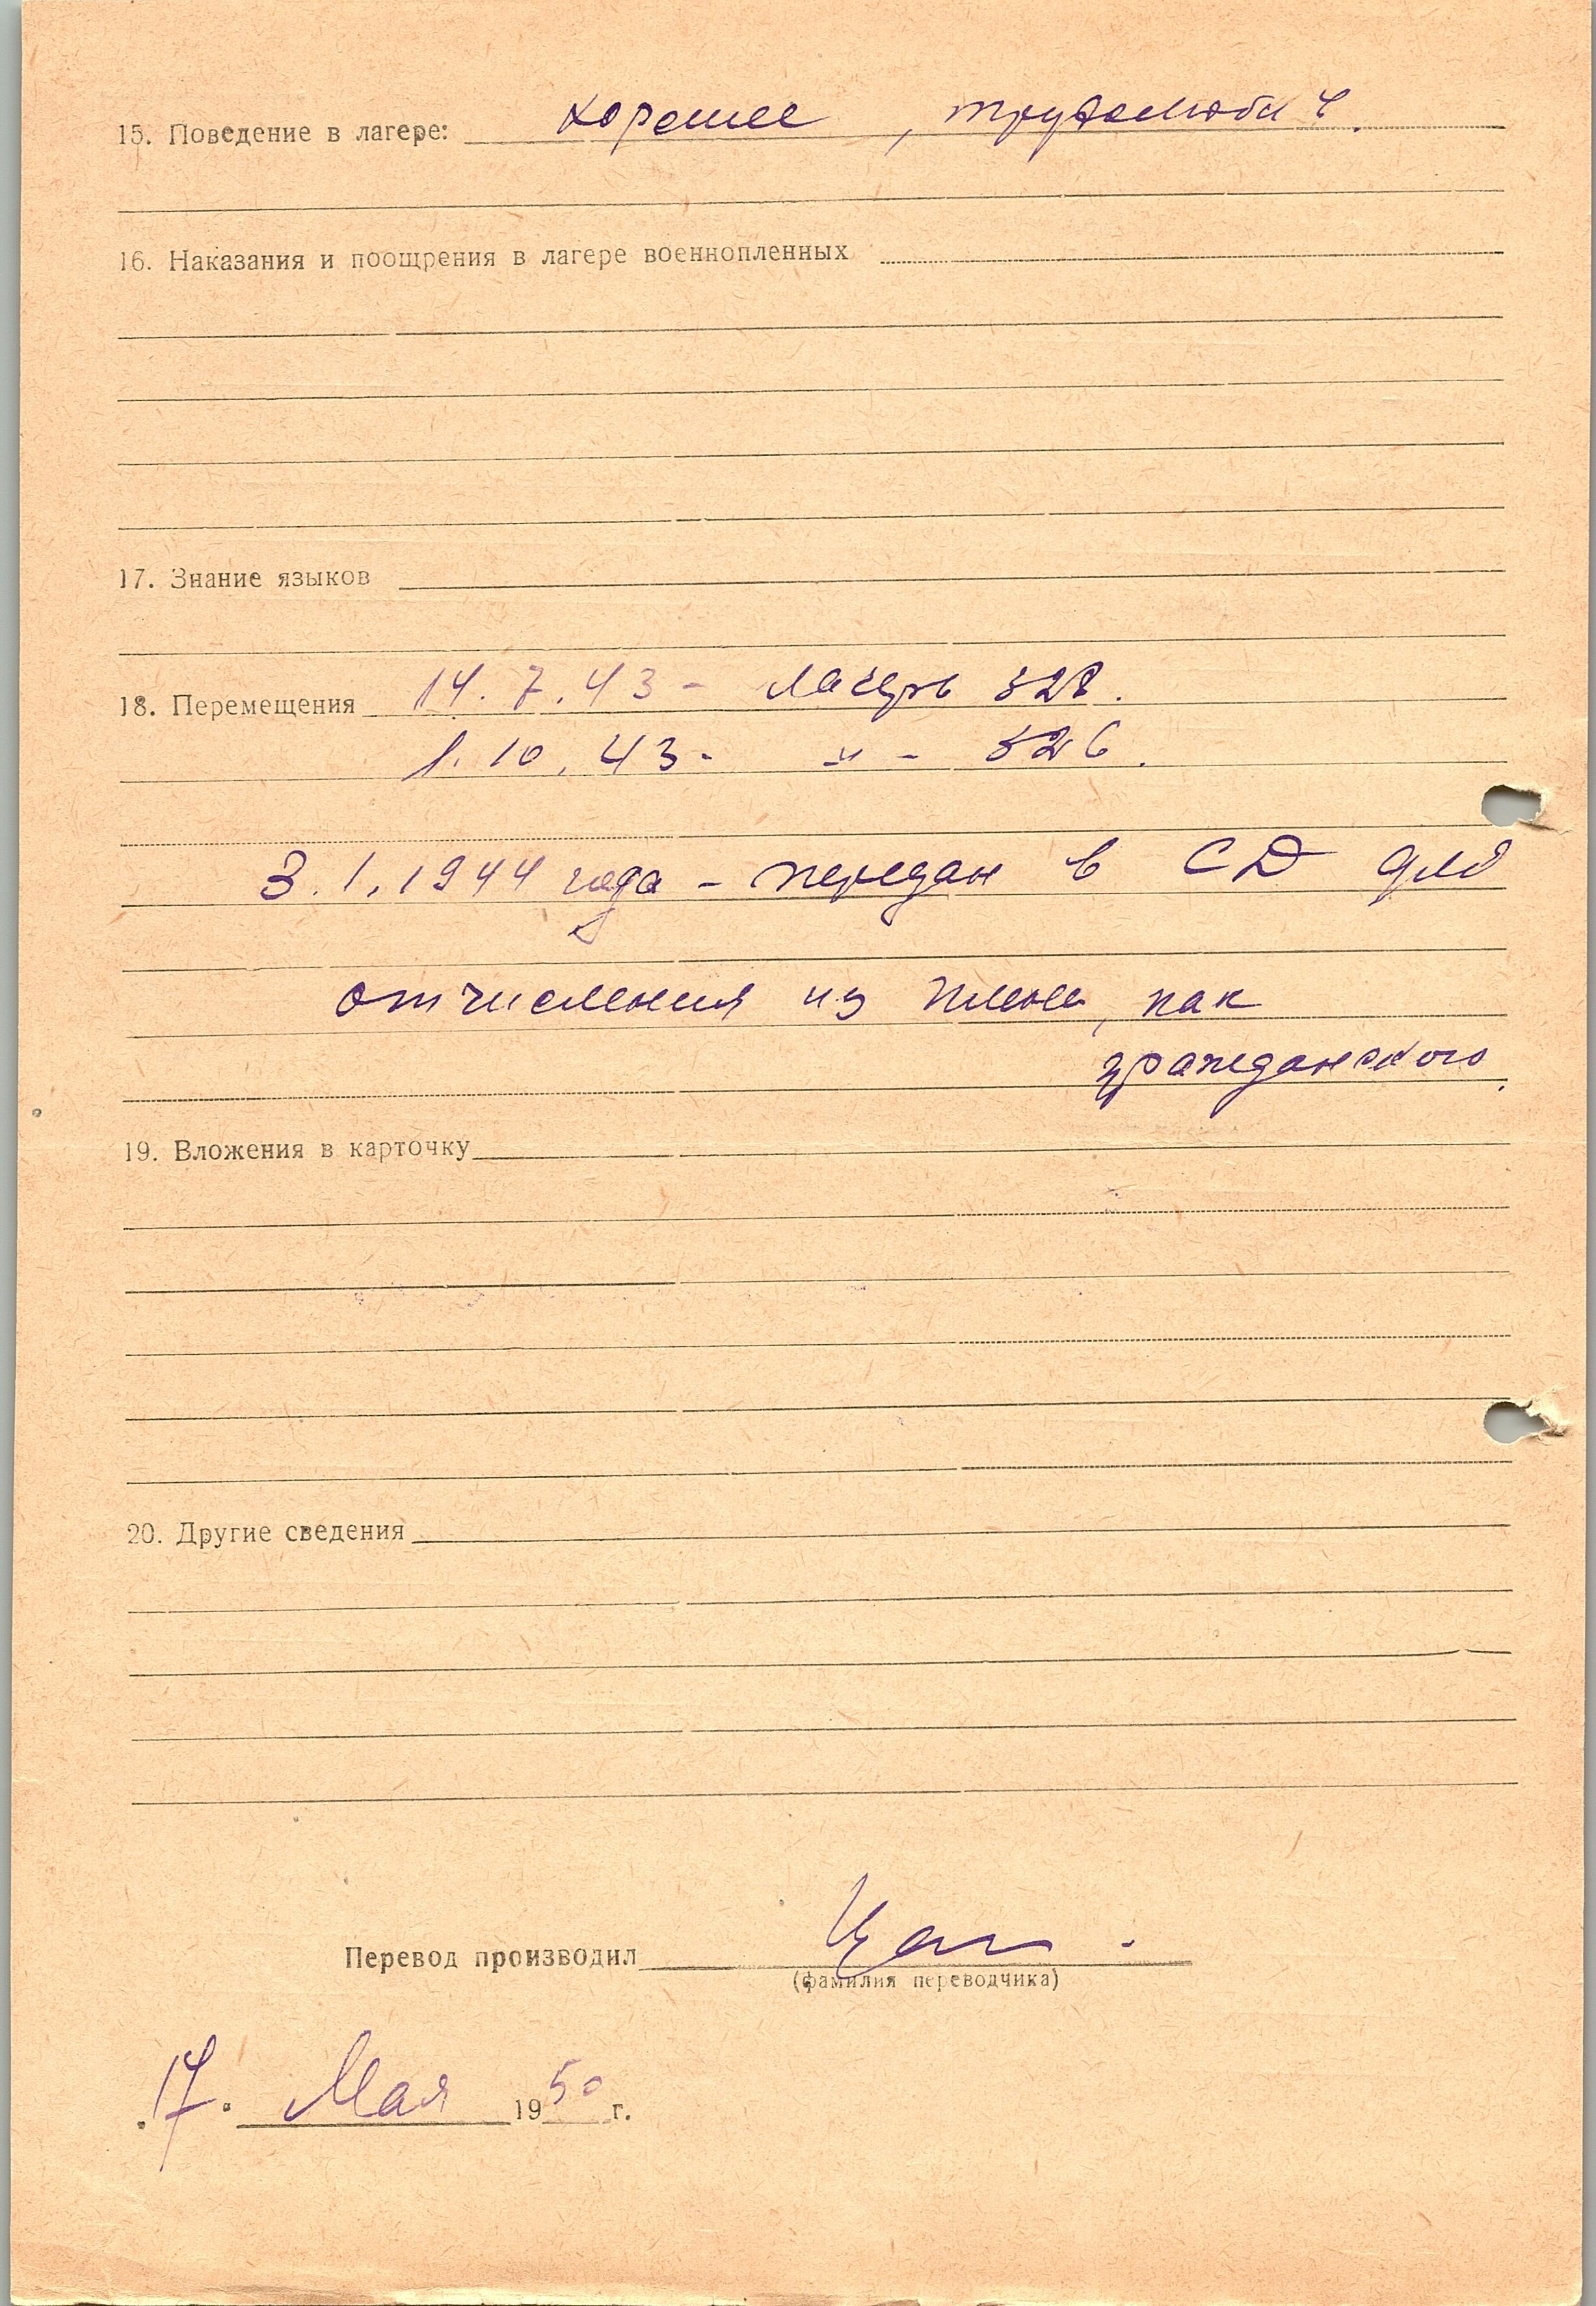 15. Поведение в лагере: хорошее, трудолюбив.
16. Наказания и поощрения в лагере военнопленных
17. Знание языков
18. Перемещения 14.7.43 - лагерь 328.
1.10.43 - " - 326.
3.1.1944 года - передан в СД для
отчисления из плена, как
гражданского.
19. Вложения в карточку
20. Другие сведения
Перевод производил
(фамилия переводчика)
17. Мая 1950 г.